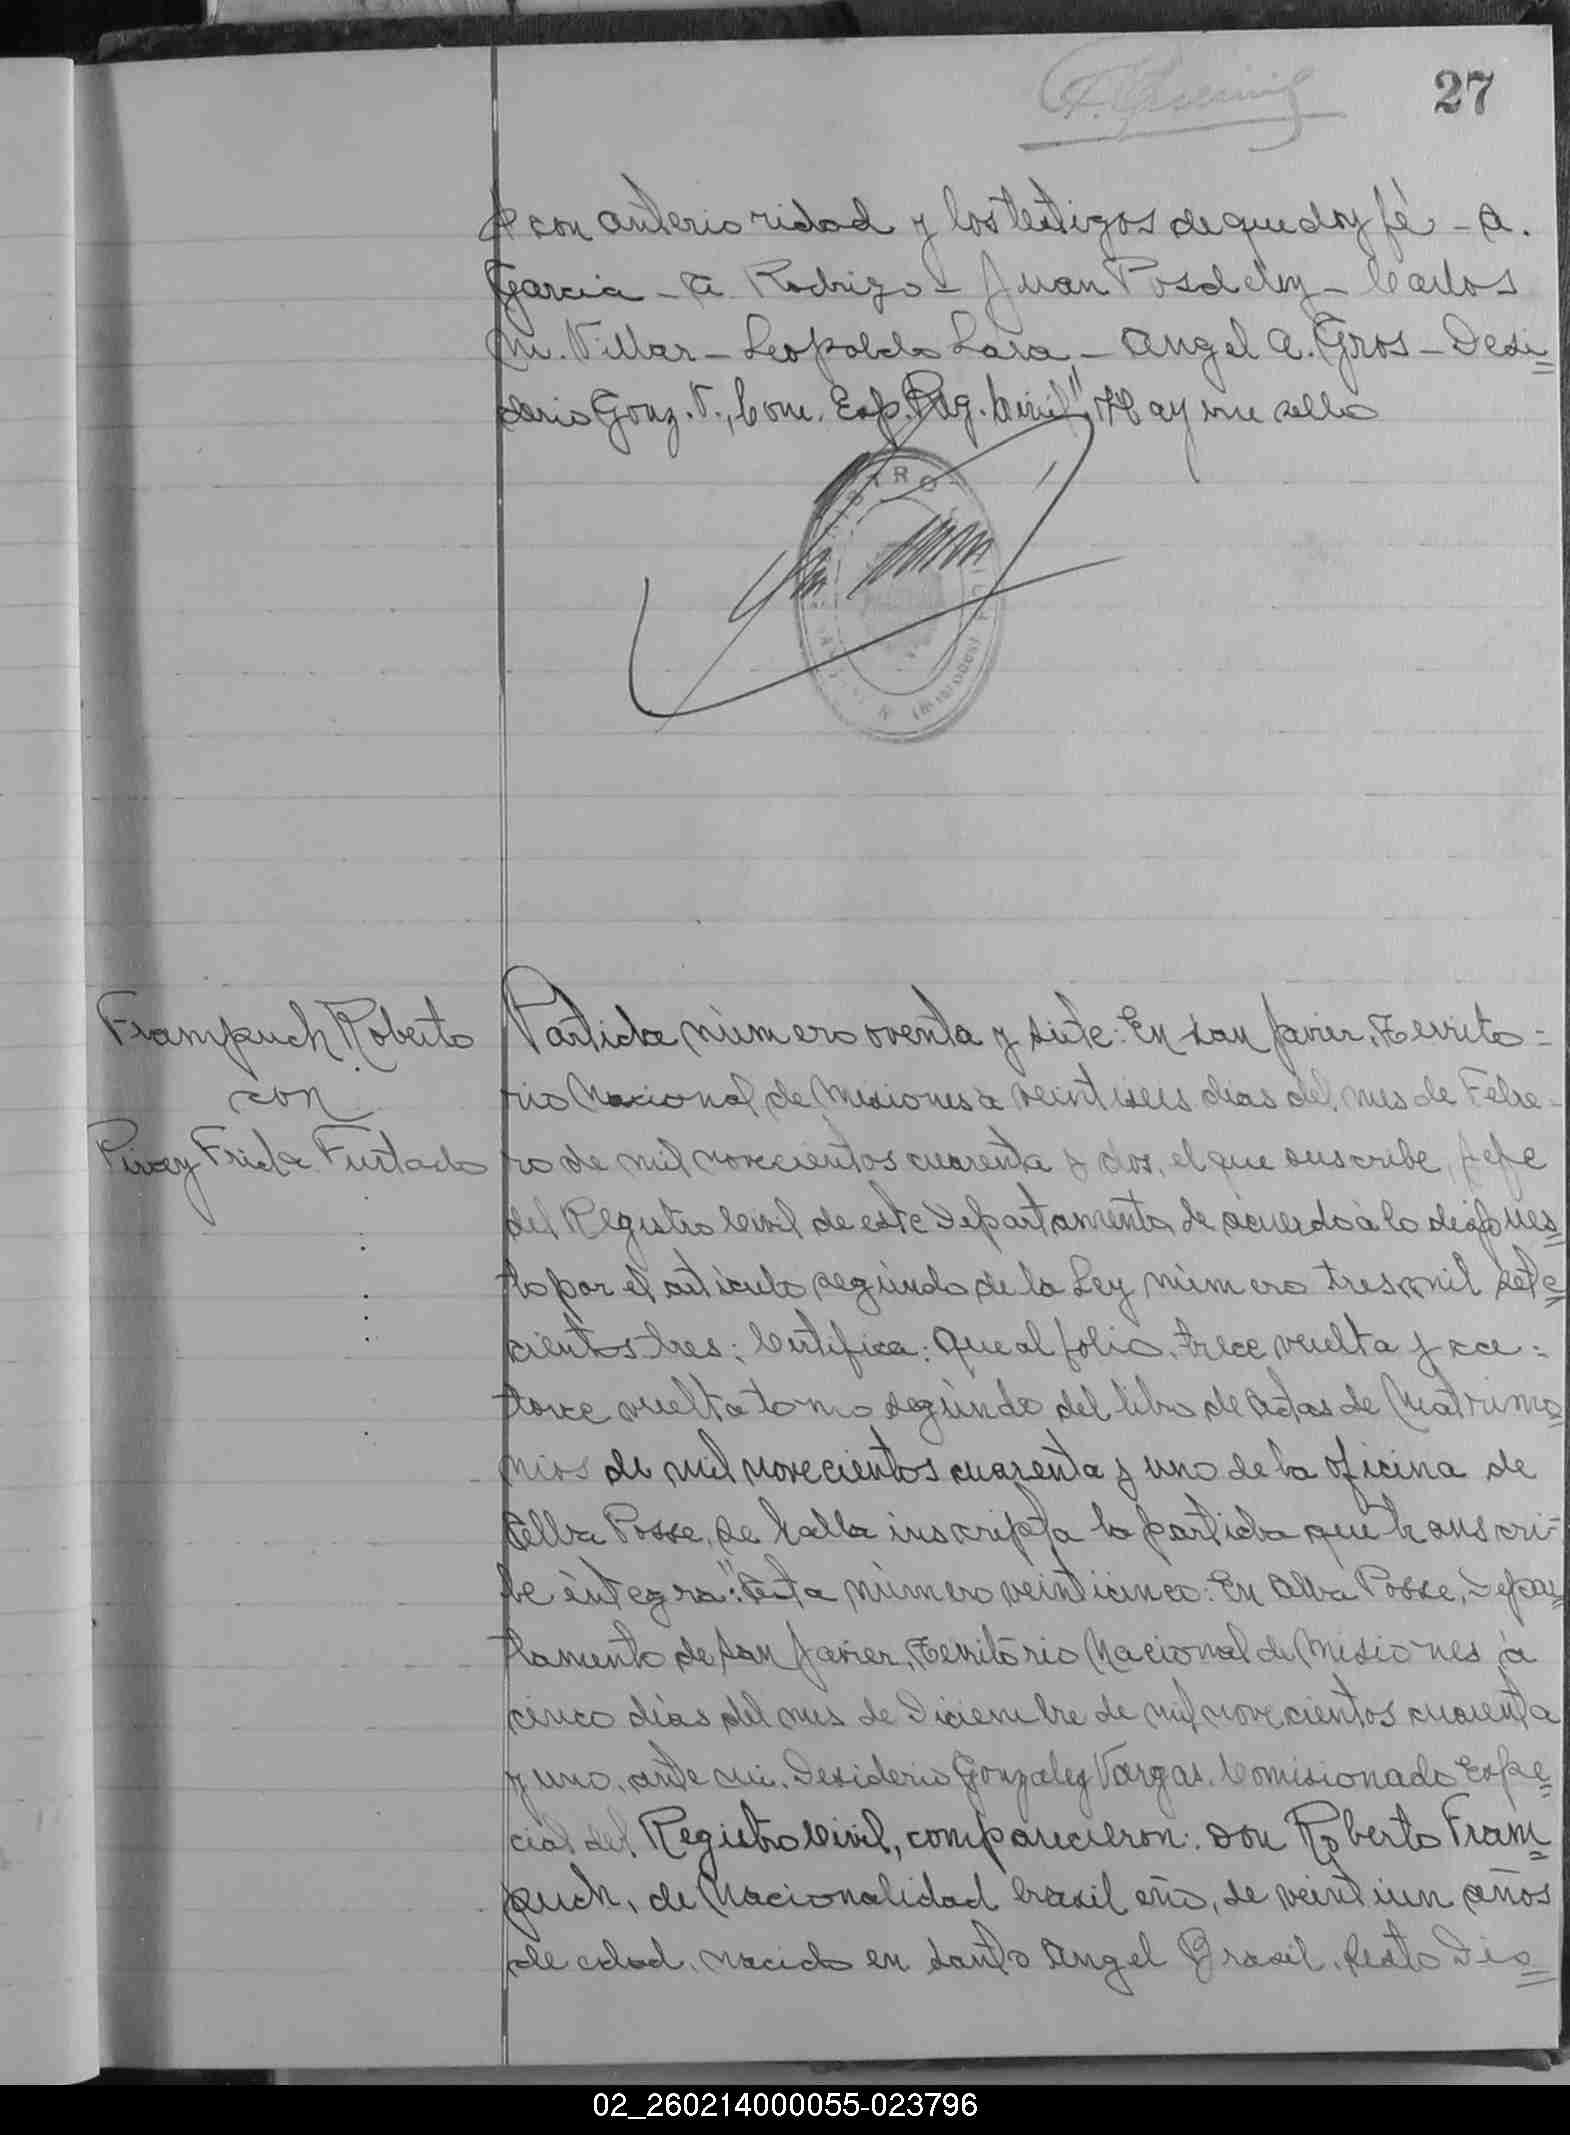 27
con anterioridad y los testigos de que doy fé - A.
Garcia - A. Rodrigo - Juan Posdeley - Carlos
M. Villar - Leopoldo Lara - Angel A. Gros - Desi=
derio Gonz. V., Com. Esp. Reg. Civil" Hay un sello
Frampuch Roberto
con
Frida Furtado
Partida número oventa y siete: En San Javier, Territo=
rio Nacional de Misiones a veintiseis dias del mes de Febre-
ro de mil novecientos cuarenta y dos, el que suscribe, Jefe
del Registro Civil de este Departamento, de acuerdo a lo dispues=
to por el articulo segundo de la Ley número tres mil sete=
cientos tres; Certifica: Que al folio, trece vuelta y ca=
torce vuelta tomo segundo del libro de Actas de Matrimo=
nios de mil novecientos cuarenta y uno de la oficina de
Alba Posse, se halla inscripta la partida que transcri-
be íntegra: "Acta número veinticinco: En Alba Posse, Depar=
tamento de San Javier, Territorio Nacional de Misiones, à
cinco días del mes de Diciembre de mil novecientos cuarenta
y uno, ante mi, Desiderio Gonzalez Vargas, Comisionado Espe=
cial del Registro Civil, comparecieron: Don Roberto Fram=
puch, de Nacionalidad brasileño, de veintiun años
de edad, nacido en Santo Angel Brasil,
02_260214000055-023796